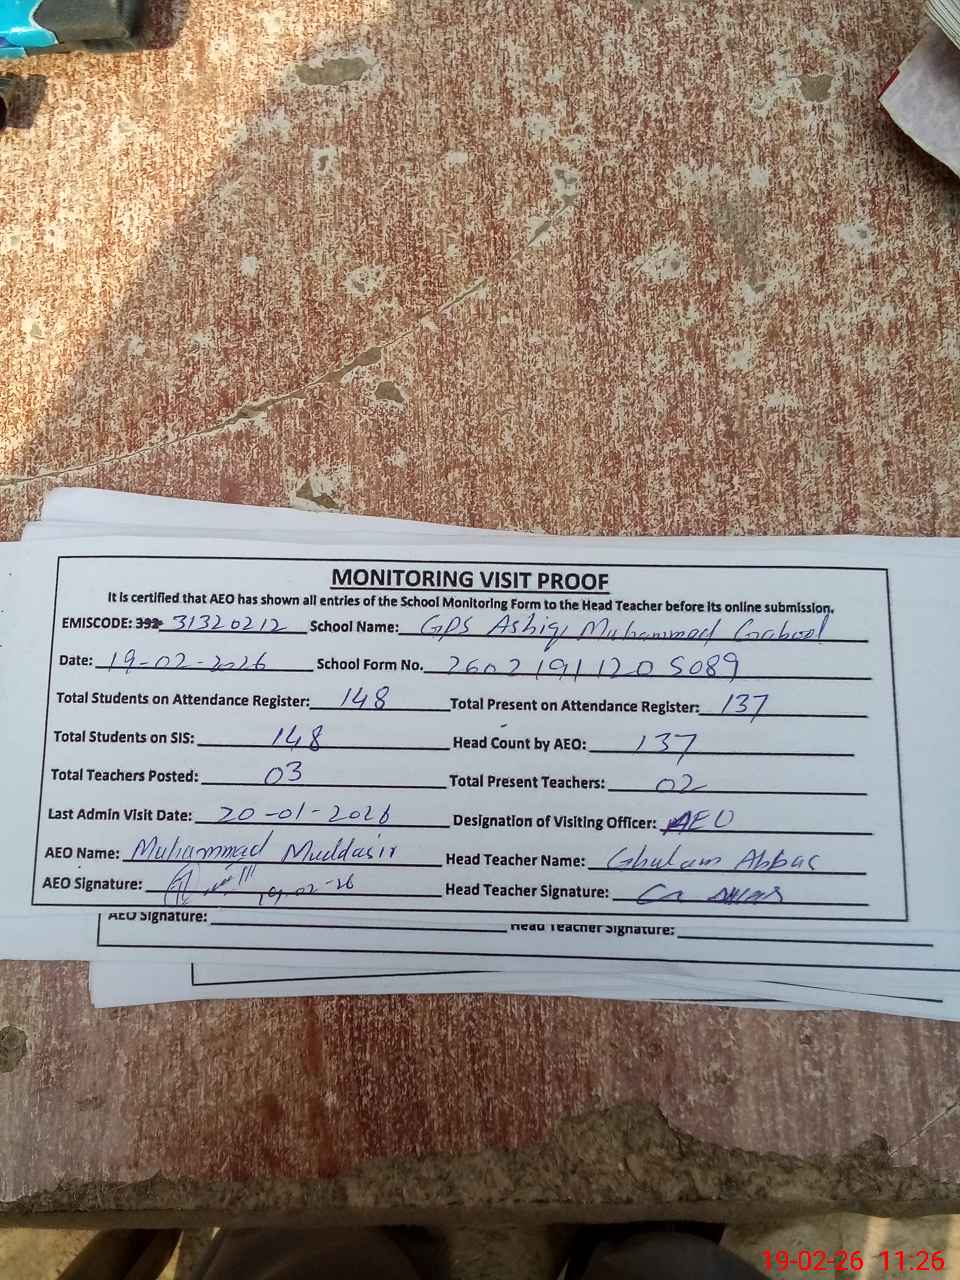 MONITORING VISIT PROOF
It is certified that AEO has shown all entries of the School Monitoring Form to the Head Teacher before its online submission.
EMISCODE: 392 31320212 School Name: GPS Ashiq Muhammad Gabool
Date: 19-02-2026 School Form No. 26021911205089
Total Students on Attendance Register: 148 Total Present on Attendance Register: 137
Total Students on SIS: 148 Head Count by AEO: 137
Total Teachers Posted: 03 Total Present Teachers: 02
Last Admin Visit Date: 20-01-2026 Designation of Visiting Officer: AEO
AEO Name: Muhammad Muddasir Head Teacher Name: Ghulam Abbas
AEO Signature: 19-02-26 Head Teacher Signature:
AEO Signature: Head Teacher Signature:
19-02-26 11:26